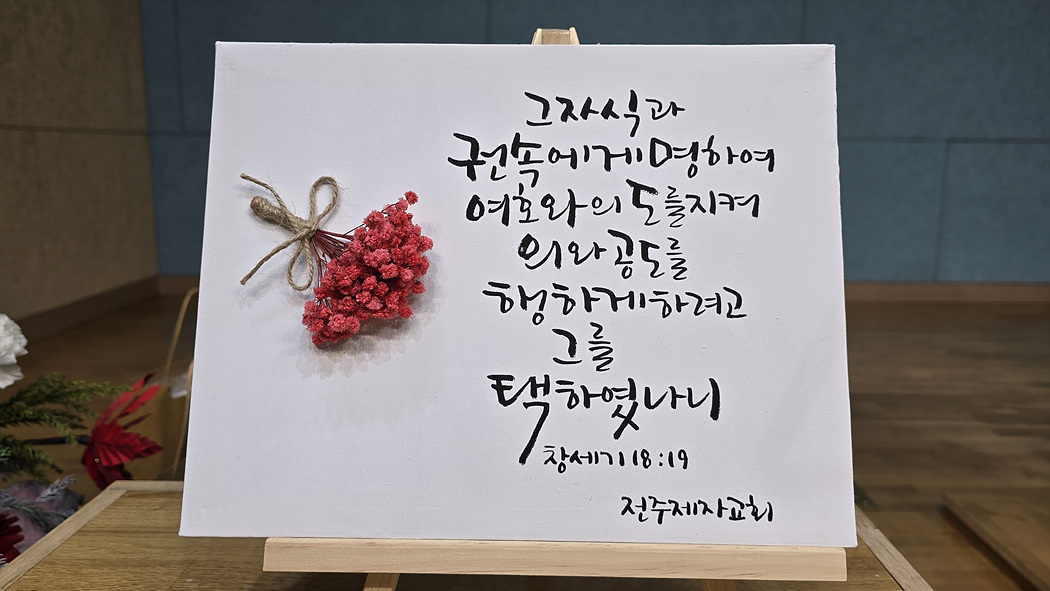 그 자식과
권속에게 명하여
여호와의 도를 지켜
의와 공도를
행하게 하려고
그를
택하였나니
창세기 18:19
전주제자교회